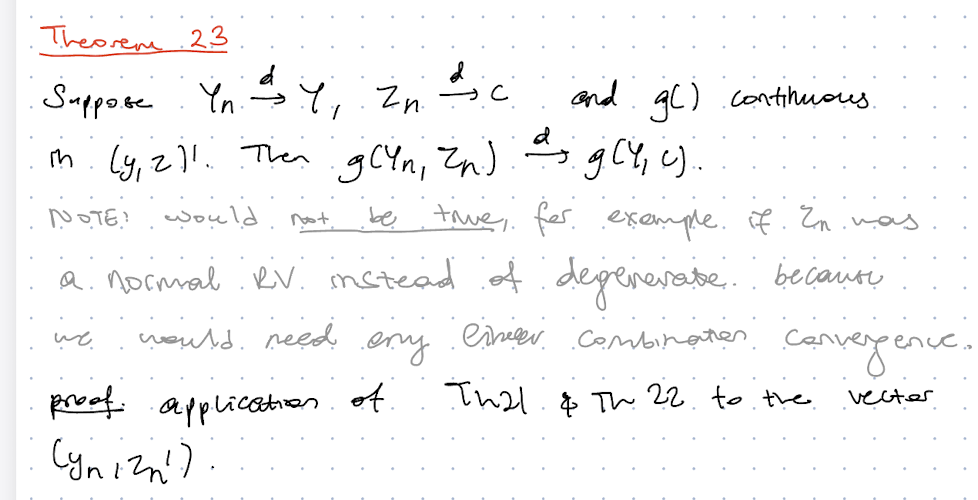 Theorem 23
Suppose Yn →d Y, Zn →d c and g() continuous
in (y, z)'. Then g(Yn, Zn) →d g(Y, c).
NOTE: would not be true, for example if Zn was
a normal RV instead of degenerate. because
we would need any linear combination convergence.
proof. application of Th21 & Th 22 to the vector
(yn, zn').